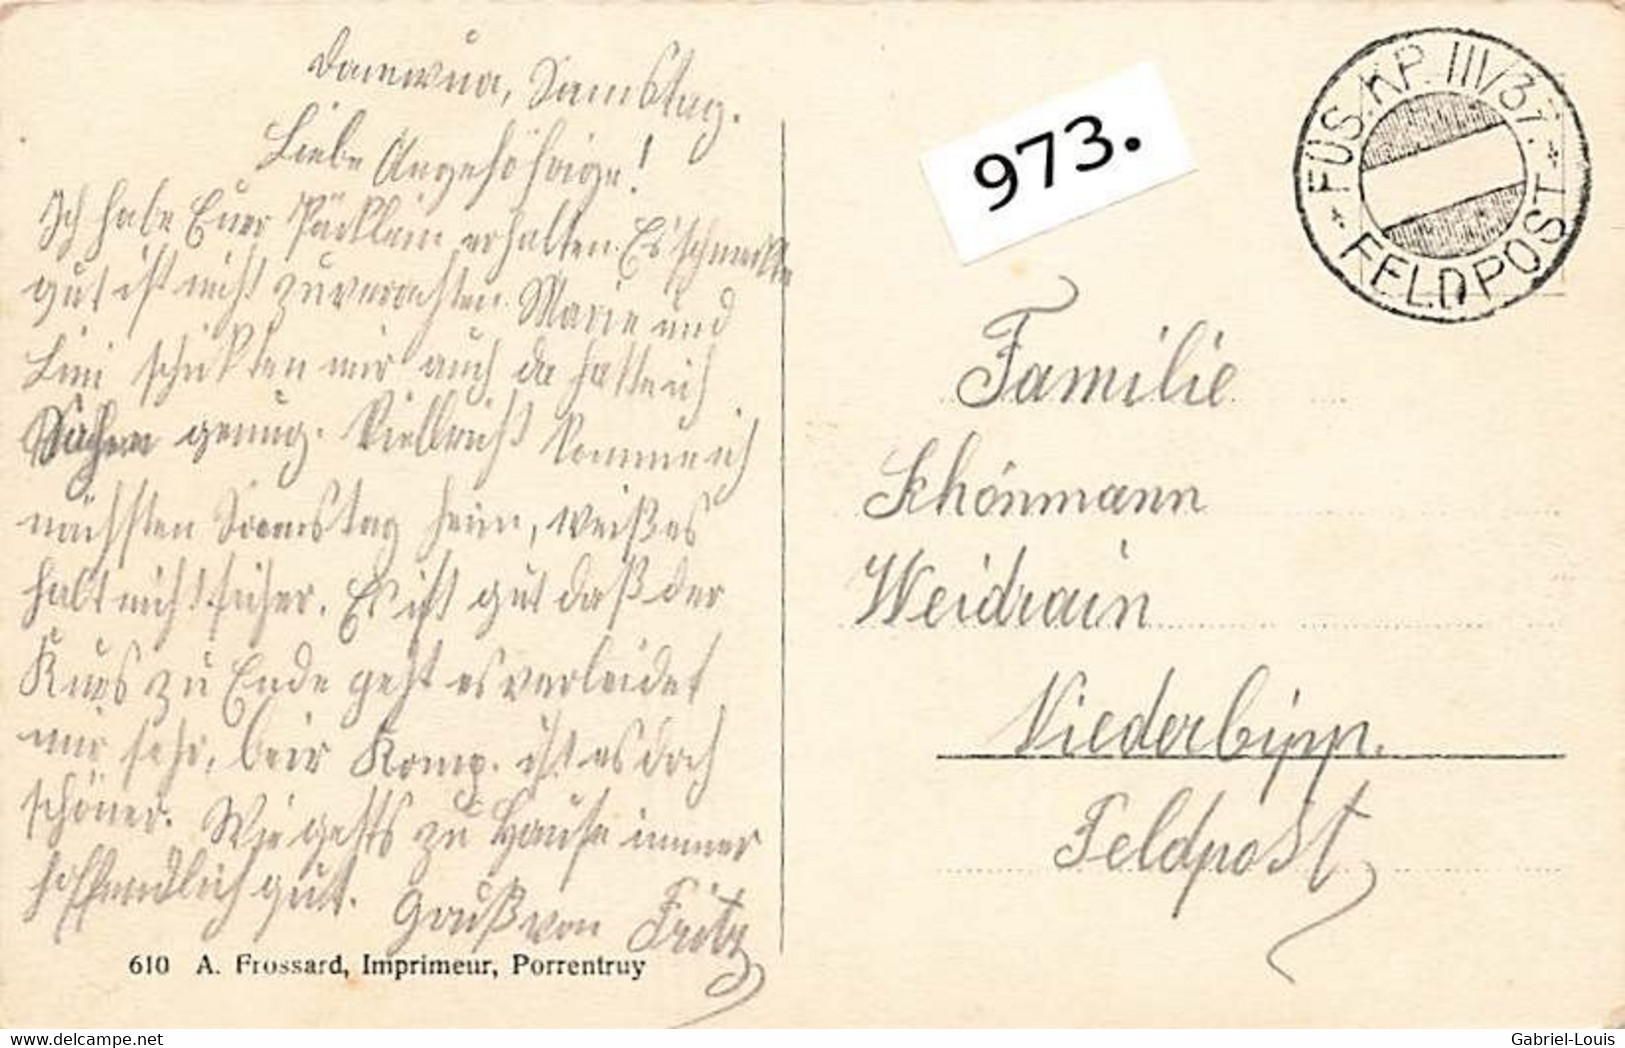 Damvua, Samstag.
Liebe Angehöhrige!
Ich habe Euer Päcklein erhalten. Es schmekte
gut ist nicht zuverachten. Marie und
Lini schikten mir auch da hatte ich
Sachen genug. Vielleicht komme ich
nächsten Samstag heim, weiß es
halt nicht sicher. Es ist gut daß der
Kurs zu Ende geht es verleidet
mir sehr, beir Komp. ist es doch
schöner. Wie gehts zu Hause immer
hoffendlich gut. Gruß von Fritz
610 A. Frossard, Imprimeur, Porrentruy
973.
FÜS. KP. III/37.
FELDPOST
Familie
Schönmann
Weidrain
Niederbipp.
Feldpost
www.delcampe.net
Gabriel-Louis